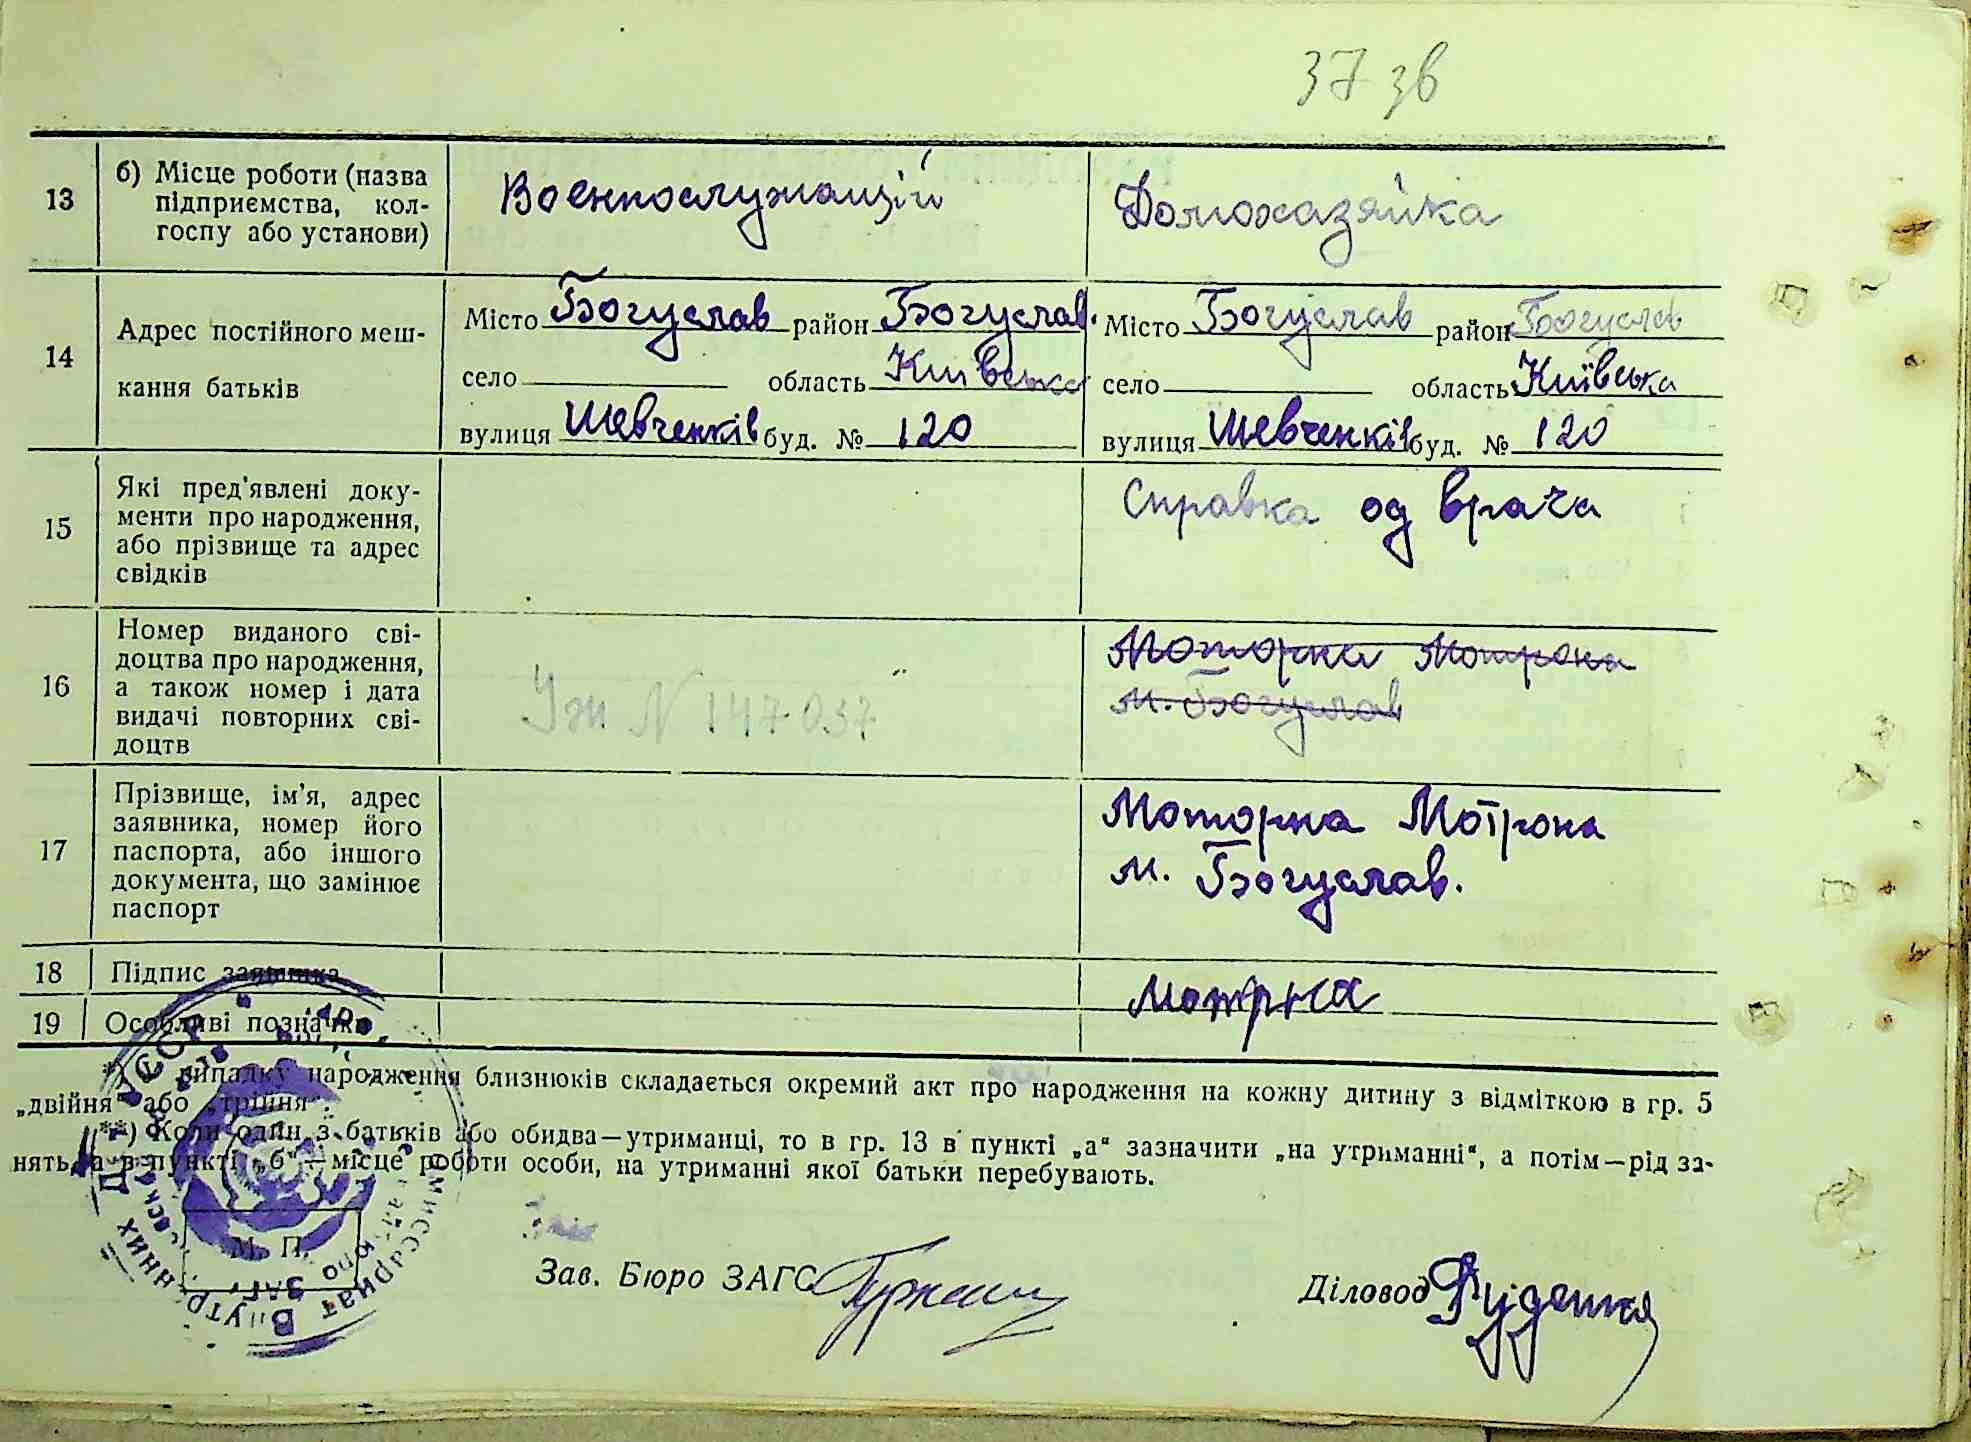 37 зв
13
б) Місце роботи (назва
підприємства, кол-
госпу або установи)
Военнослужащій
Домохазяйка
14
Адрес постійного меш-
кання батьків
Місто Богуслав район Богуслав.
село область Київська
вулиця Шевченків буд. № 120
Місто Богуслав район Богуслав
село область Київська
вулиця Шевченків буд. № 120
15
Які пред'явлені доку-
менти про народження,
або прізвище та адрес
свідків
Справка од врача
16
Номер виданого сві-
доцтва про народження,
а також номер і дата
видачі повторних сві-
доцтв
Уж N 147037
Моторна Мотрона
м. Богуслав
17
Прізвище, ім'я, адрес
заявника, номер його
паспорта, або іншого
документа, що замінює
паспорт
Моторна Мотрона
м. Богуслав.
18
Підпис заявника
Мотрна
19
Особливі позначки
*) випадку народження близнюків складається окремий акт про народження на кожну дитину з відміткою в гр. 5
„двійня“ або „трійня“.
**) Коли один з батьків або обидва—утриманці, то в гр. 13 в пункті „а“ зазначити „на утриманні“, а потім—рід за-
нять, а в пункті „б“—місце роботи особи, на утриманні якої батьки перебувають.
М. П.
Зав. Бюро ЗАГС
Діловод Руденко